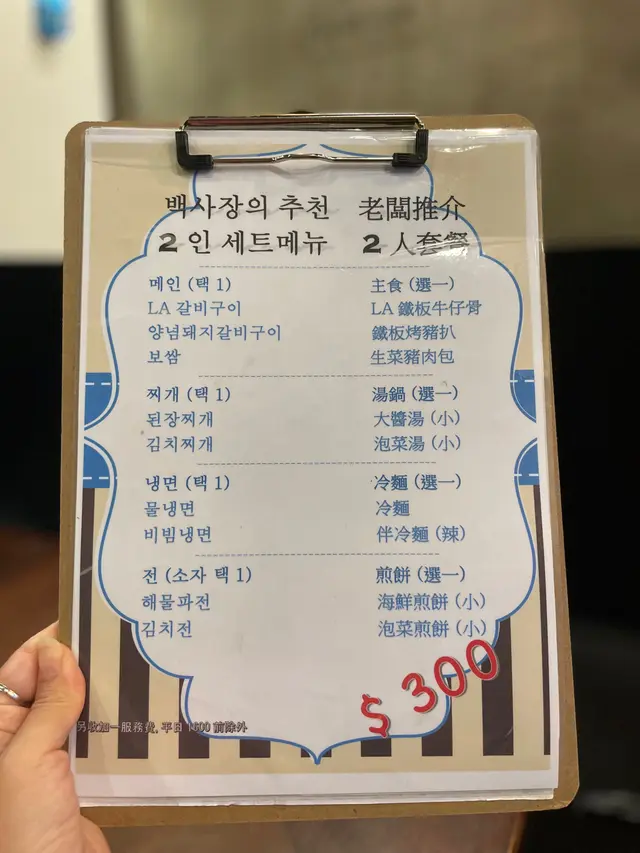 백사장의 추천 老闆推介
2 인 세트메뉴 2 人套餐
메인 (택 1) 主食 (選一)
LA 갈비구이 LA 鐵板牛仔骨
양념돼지갈비구이 鐵板烤豬扒
보쌈 生菜豬肉包
찌개 (택 1) 湯鍋 (選一)
된장찌개 大醬湯 (小)
김치찌개 泡菜湯 (小)
냉면 (택 1) 冷麵 (選一)
물냉면 冷麵
비빔냉면 伴冷麵 (辣)
전 (소자 택 1) 煎餅 (選一)
해물파전 海鮮煎餅 (小)
김치전 泡菜煎餅 (小)
$ 300
另收加一服務費, 平日 1800 前除外